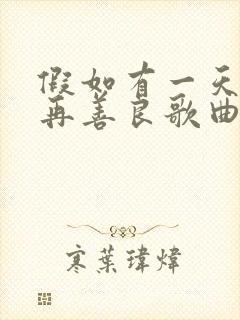 假如有一天
再善良歌曲
寒葉瑋煒